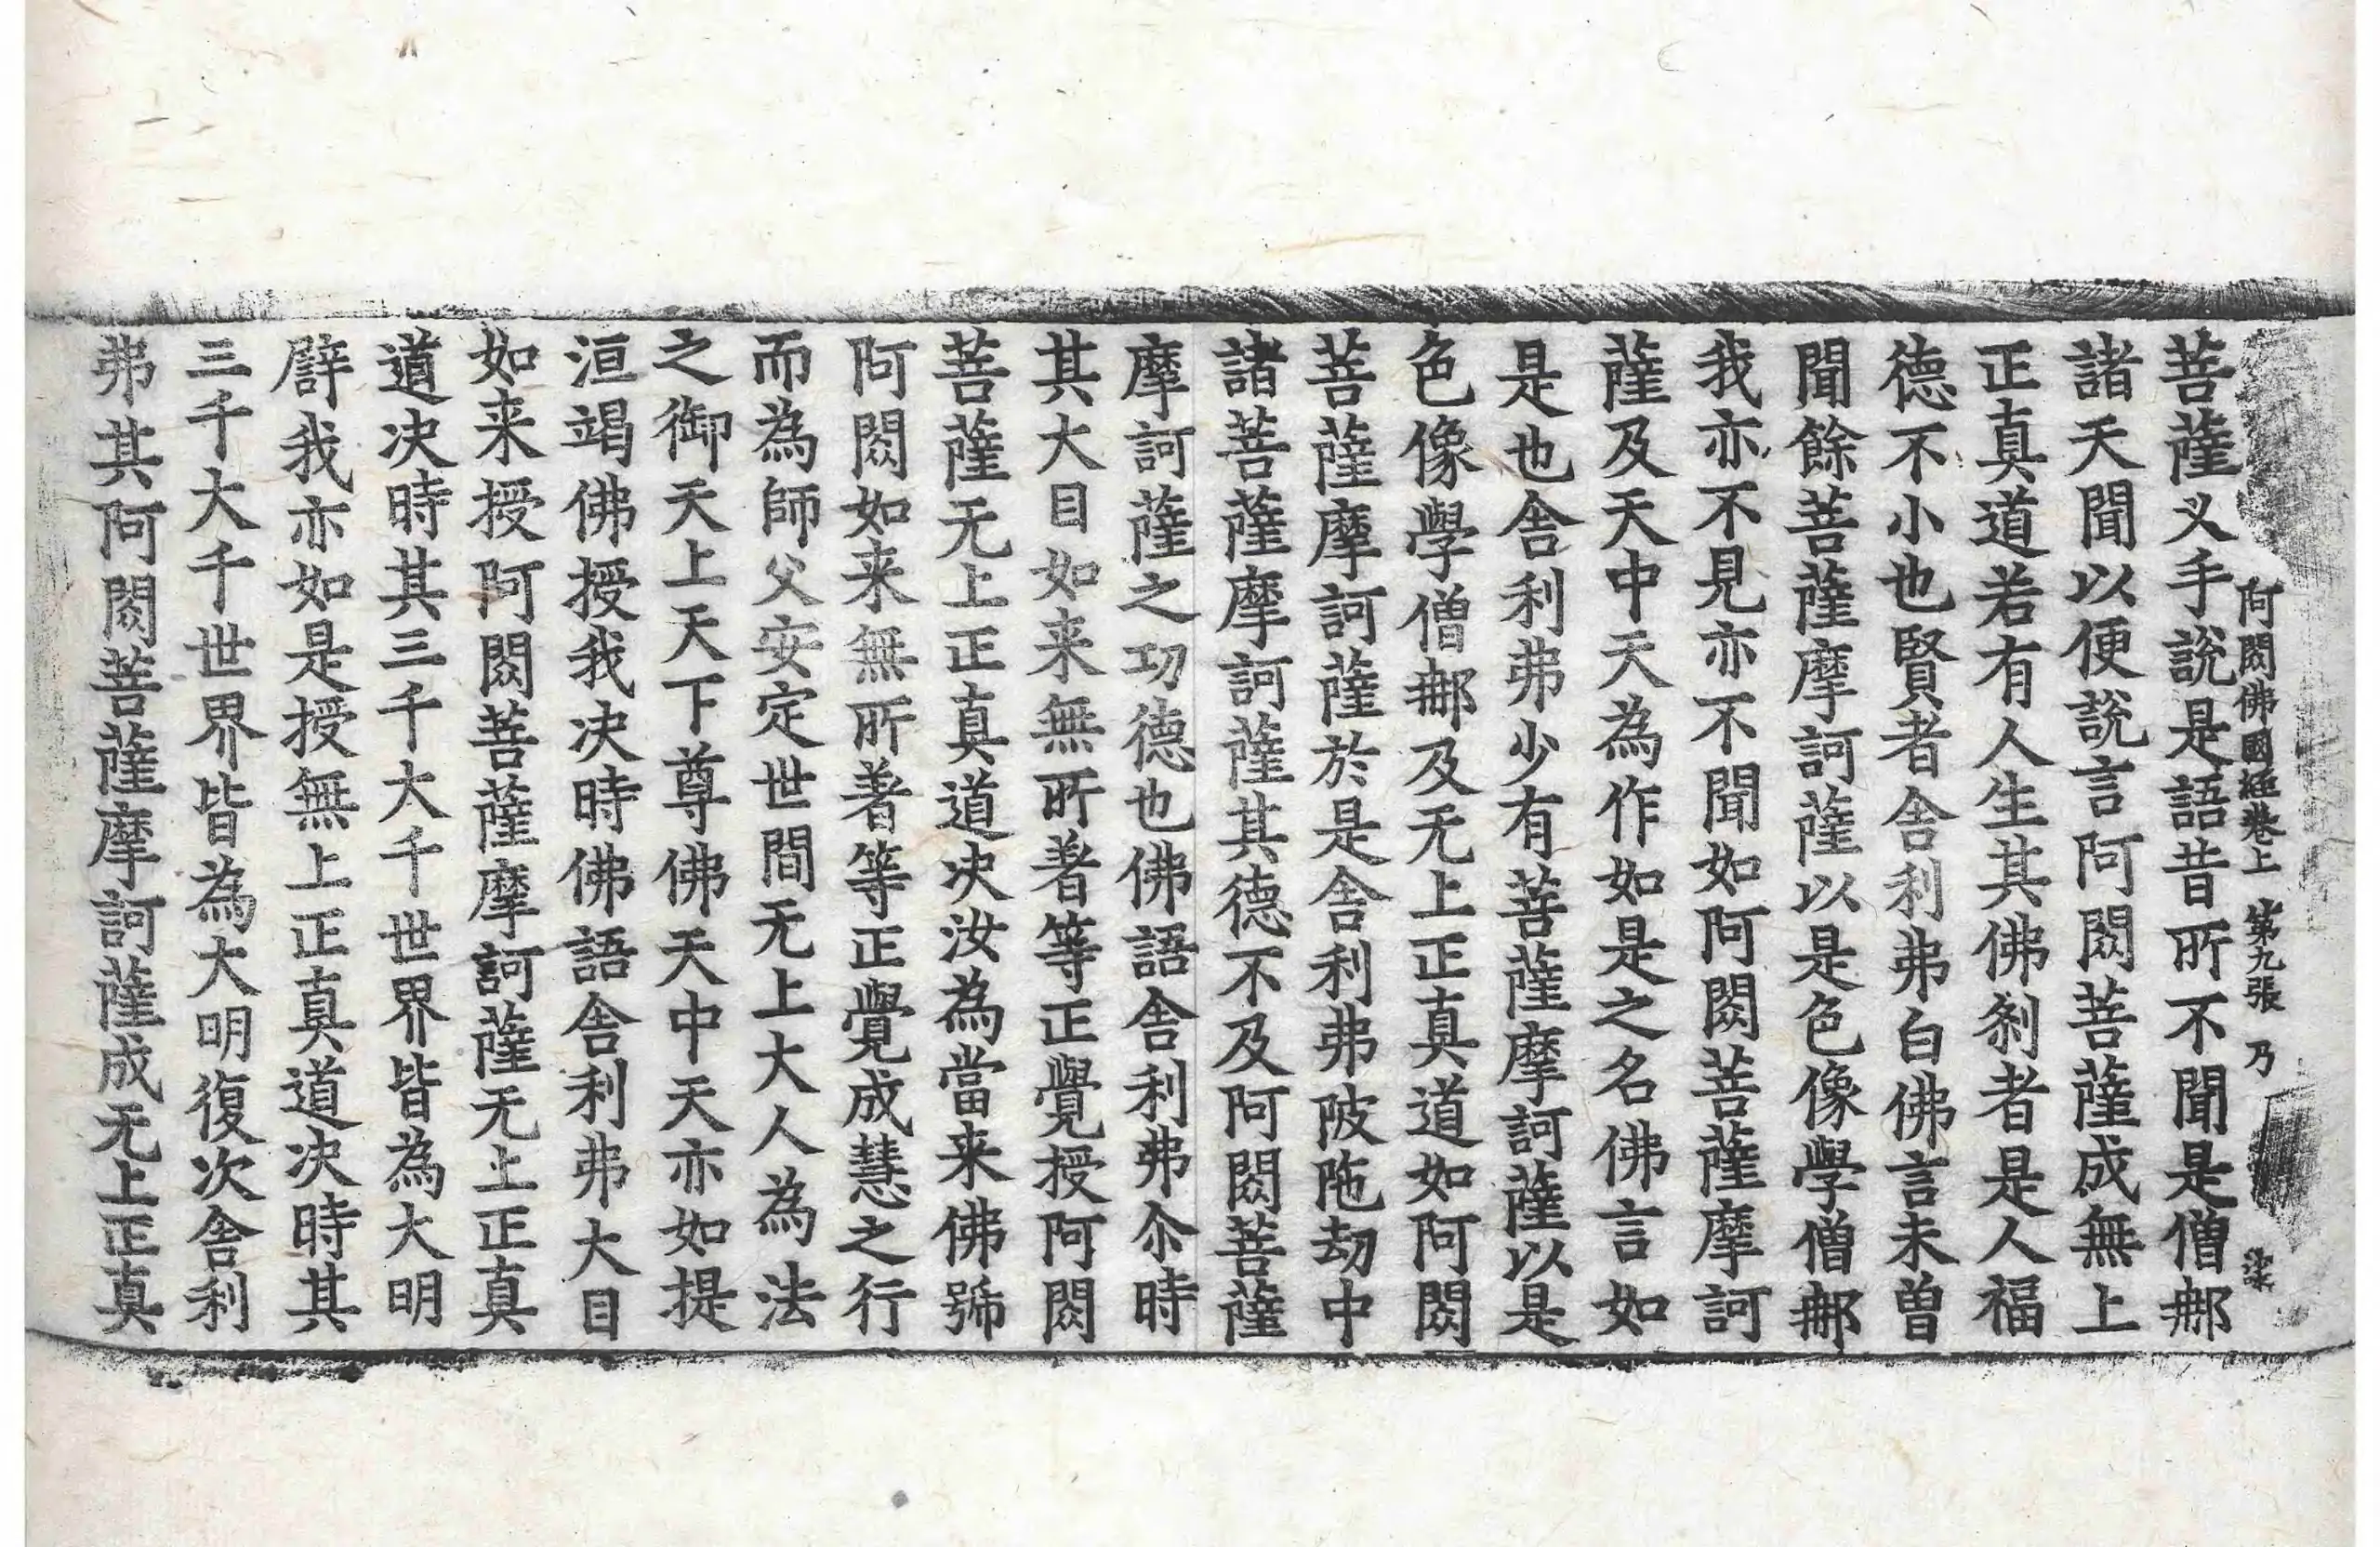 阿閦佛國經卷上 第九張 乃
菩薩义手說是語昔所不聞是僧那
諸天聞以便說言阿閦菩薩成無上
正真道若有人生其佛刹者是人福
德不小也賢者舍利弗白佛言未曾
聞餘菩薩摩訶薩以是色像學僧那
我亦不見亦不聞如阿閦菩薩摩訶
薩及天中天為作如是之名佛言如
是也舍利弗少有菩薩摩訶薩以是
色像學僧那及无上正真道如阿閦
菩薩摩訶薩於是舍利弗陂陁劫中
諸菩薩摩訶薩其德不及阿閦菩薩
摩訶薩之功德也佛語舍利弗尒時
其大目如来無所著等正覺授阿閦
菩薩无上正真道决汝為當来佛號
阿閦如来無所著等正覺成慧之行
而為師父安定世間无上大人為法
之御天上天下尊佛天中天亦如提
洹竭佛授我决時佛語舍利弗大目
如来授阿閦菩薩摩訶薩无上正真
道决時其三千大千世界皆為大明
辟我亦如是授無上正真道决時其
三千大千世界皆為大明復次舍利
弗其阿閦菩薩摩訶薩成无上正真